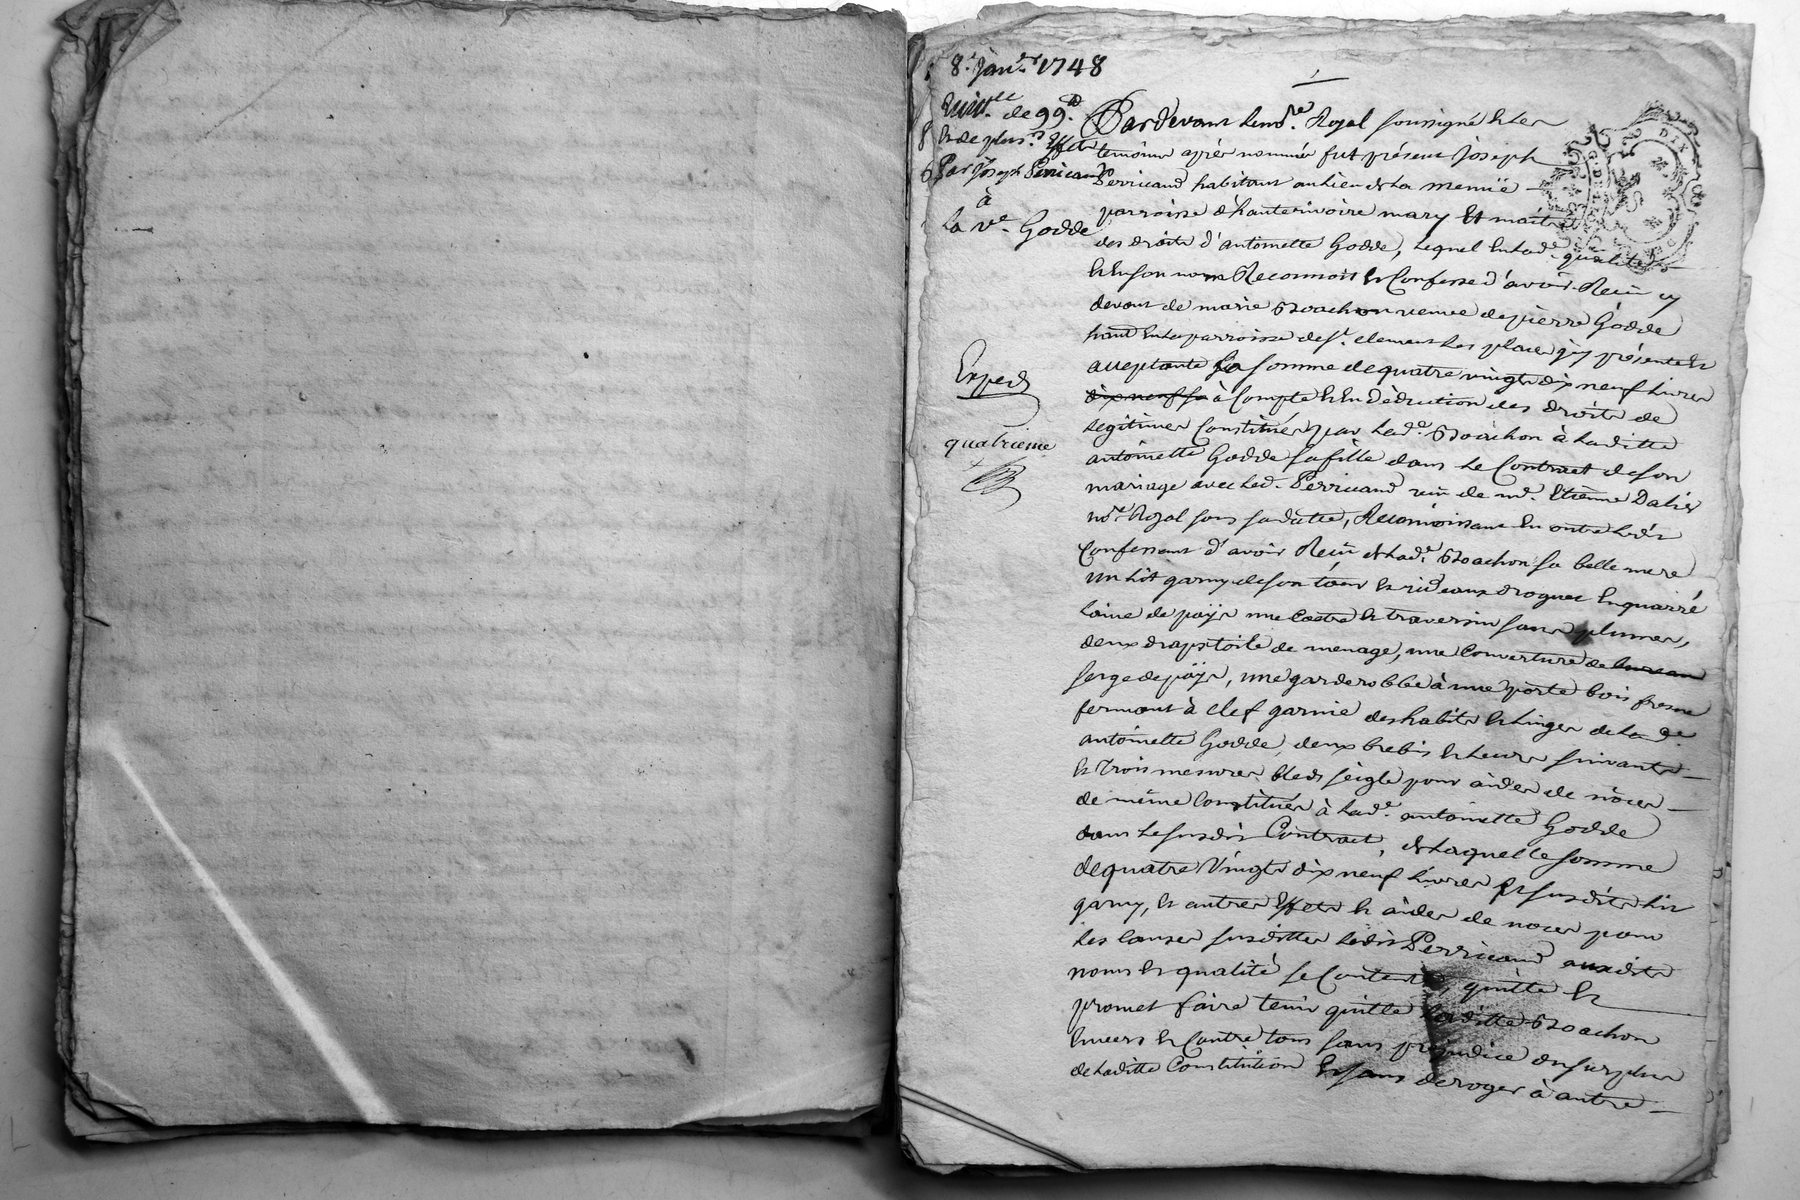 8e. Janv.er 1748
Quitt.ce de 99.tt
& de plus.rs Effets
Par Joseph Perricaud
à
La v.e Godde
Exped
quatrieme
Pardevant le no.re Royal soussigné & les
temoins après nommés fut présent Joseph
Perricaud habitant au lieu de La
parroisse d'hauterivoire mary et maître
des droits d'antoinette Godde, Lequel en lad.e qualité
& en son nom Reconnoit & Confesse d'avoir Reçu cy
devant de marie veuve de pierre Godde
en la parroisse de s.t clement les places icy présente &
acceptante La somme de quatre vingts dix neuf Livres
dix neuf so à Compte & en déduction des droits de
légitimes Constitués par lad.e à laditte
antoinette Godde sa fille dans le Contract de son
mariage avec led. Perricaud reçu de m.e Etienne Dalier
no.re Royal sous sa datte, Reconnoissant en outre led.
Confessant d'avoir Reçu de lad.e sa belle mere
un lit garny de son tour & rideaux drogues en quarré
laine de païs une & traversin sans plumes,
deux draps toile de menage, une Couverture de bureau
serge de païs, une garderobbe à une porte bois fresne
fermant à clef garnie des habits & linges de la d.e
antoinette Godde, deux brebis & leurs suivants
& trois mesures bled seigle pour aides de nôces
de même Constitués à lad.e antoinette Godde
dans le susdit Contract, de laquelle somme
de quatre Vingts dix neuf Livres & susdits lit
garny, & autres Effets & aides de noces pour
les causes susdittes ledit Perricaud auxdits
noms & qualité se Contente, quitte &
promet faire tenir quitte laditte
Envers & Contre tous sans préjudice du surplus
de laditte Constitution & sans deroger à autre